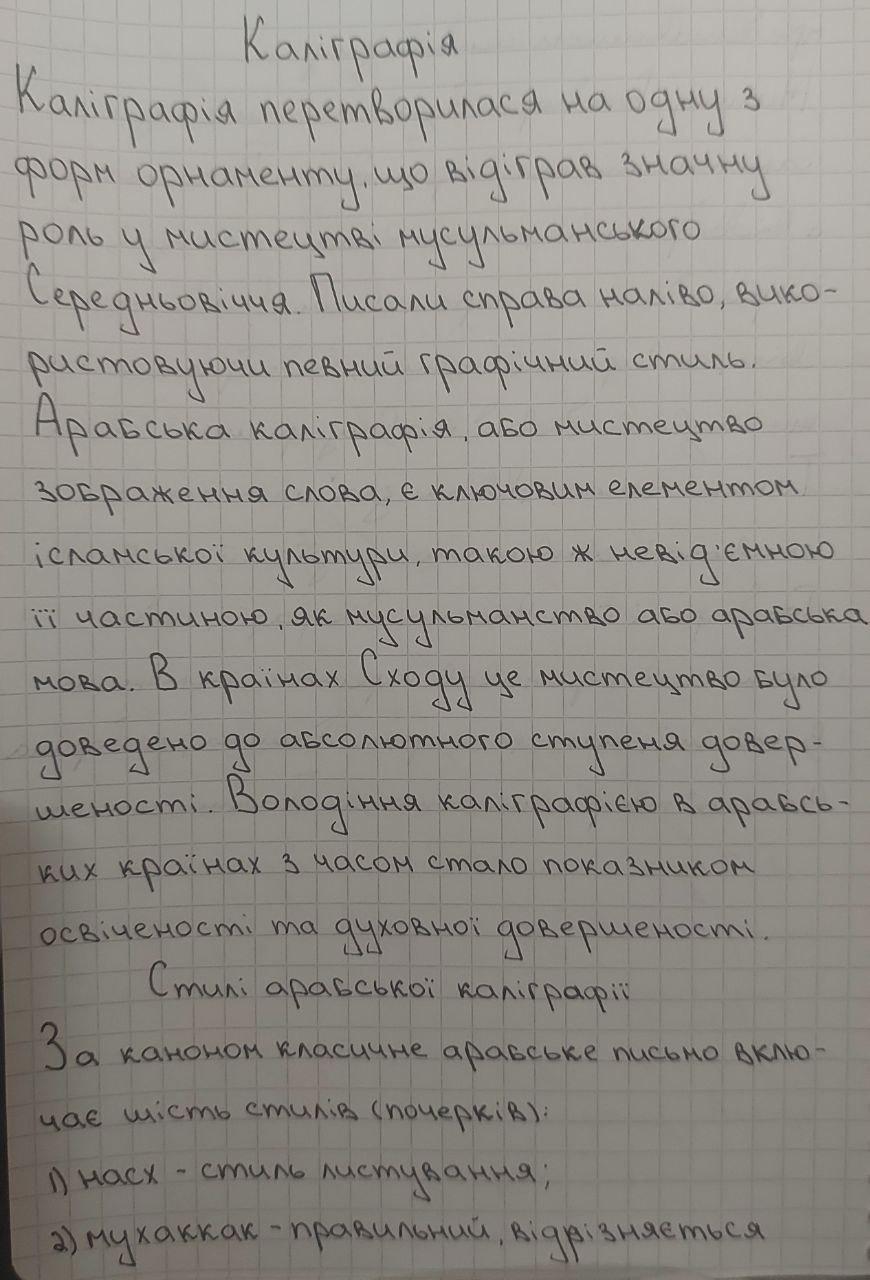 Каліграфія
Каліграфія перетворилася на одну з
форм орнаменту, що відіграв значну
роль у мистецтві мусульманського
Середньовіччя. Писали справа наліво, вико-
ристовуючи певний графічний стиль.
Арабська каліграфія, або мистецтво
зображення слова, є ключовим елементом
ісламської культури, такою ж невід'ємною
її частиною, як мусульманство або арабська
мова. В країнах Сходу це мистецтво було
доведено до абсолютного ступеня довер-
шеності. Володіння каліграфією в арабсь-
ких країнах з часом стало показником
освіченості та духовної довершеності.
Стилі арабської каліграфії
За каноном класичне арабське письмо вклю-
чає шість стилів (почерків):
1) насх - стиль листування;
2) мухаккак - правильний, відрізняється